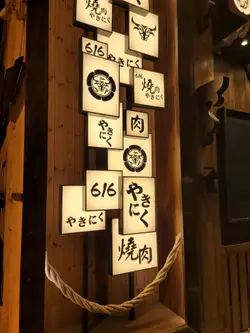 燒肉
やきにく
616
やきにく
616
燒肉
やきにく
やき
にく
肉
616
やきにく
やき
にく
燒肉